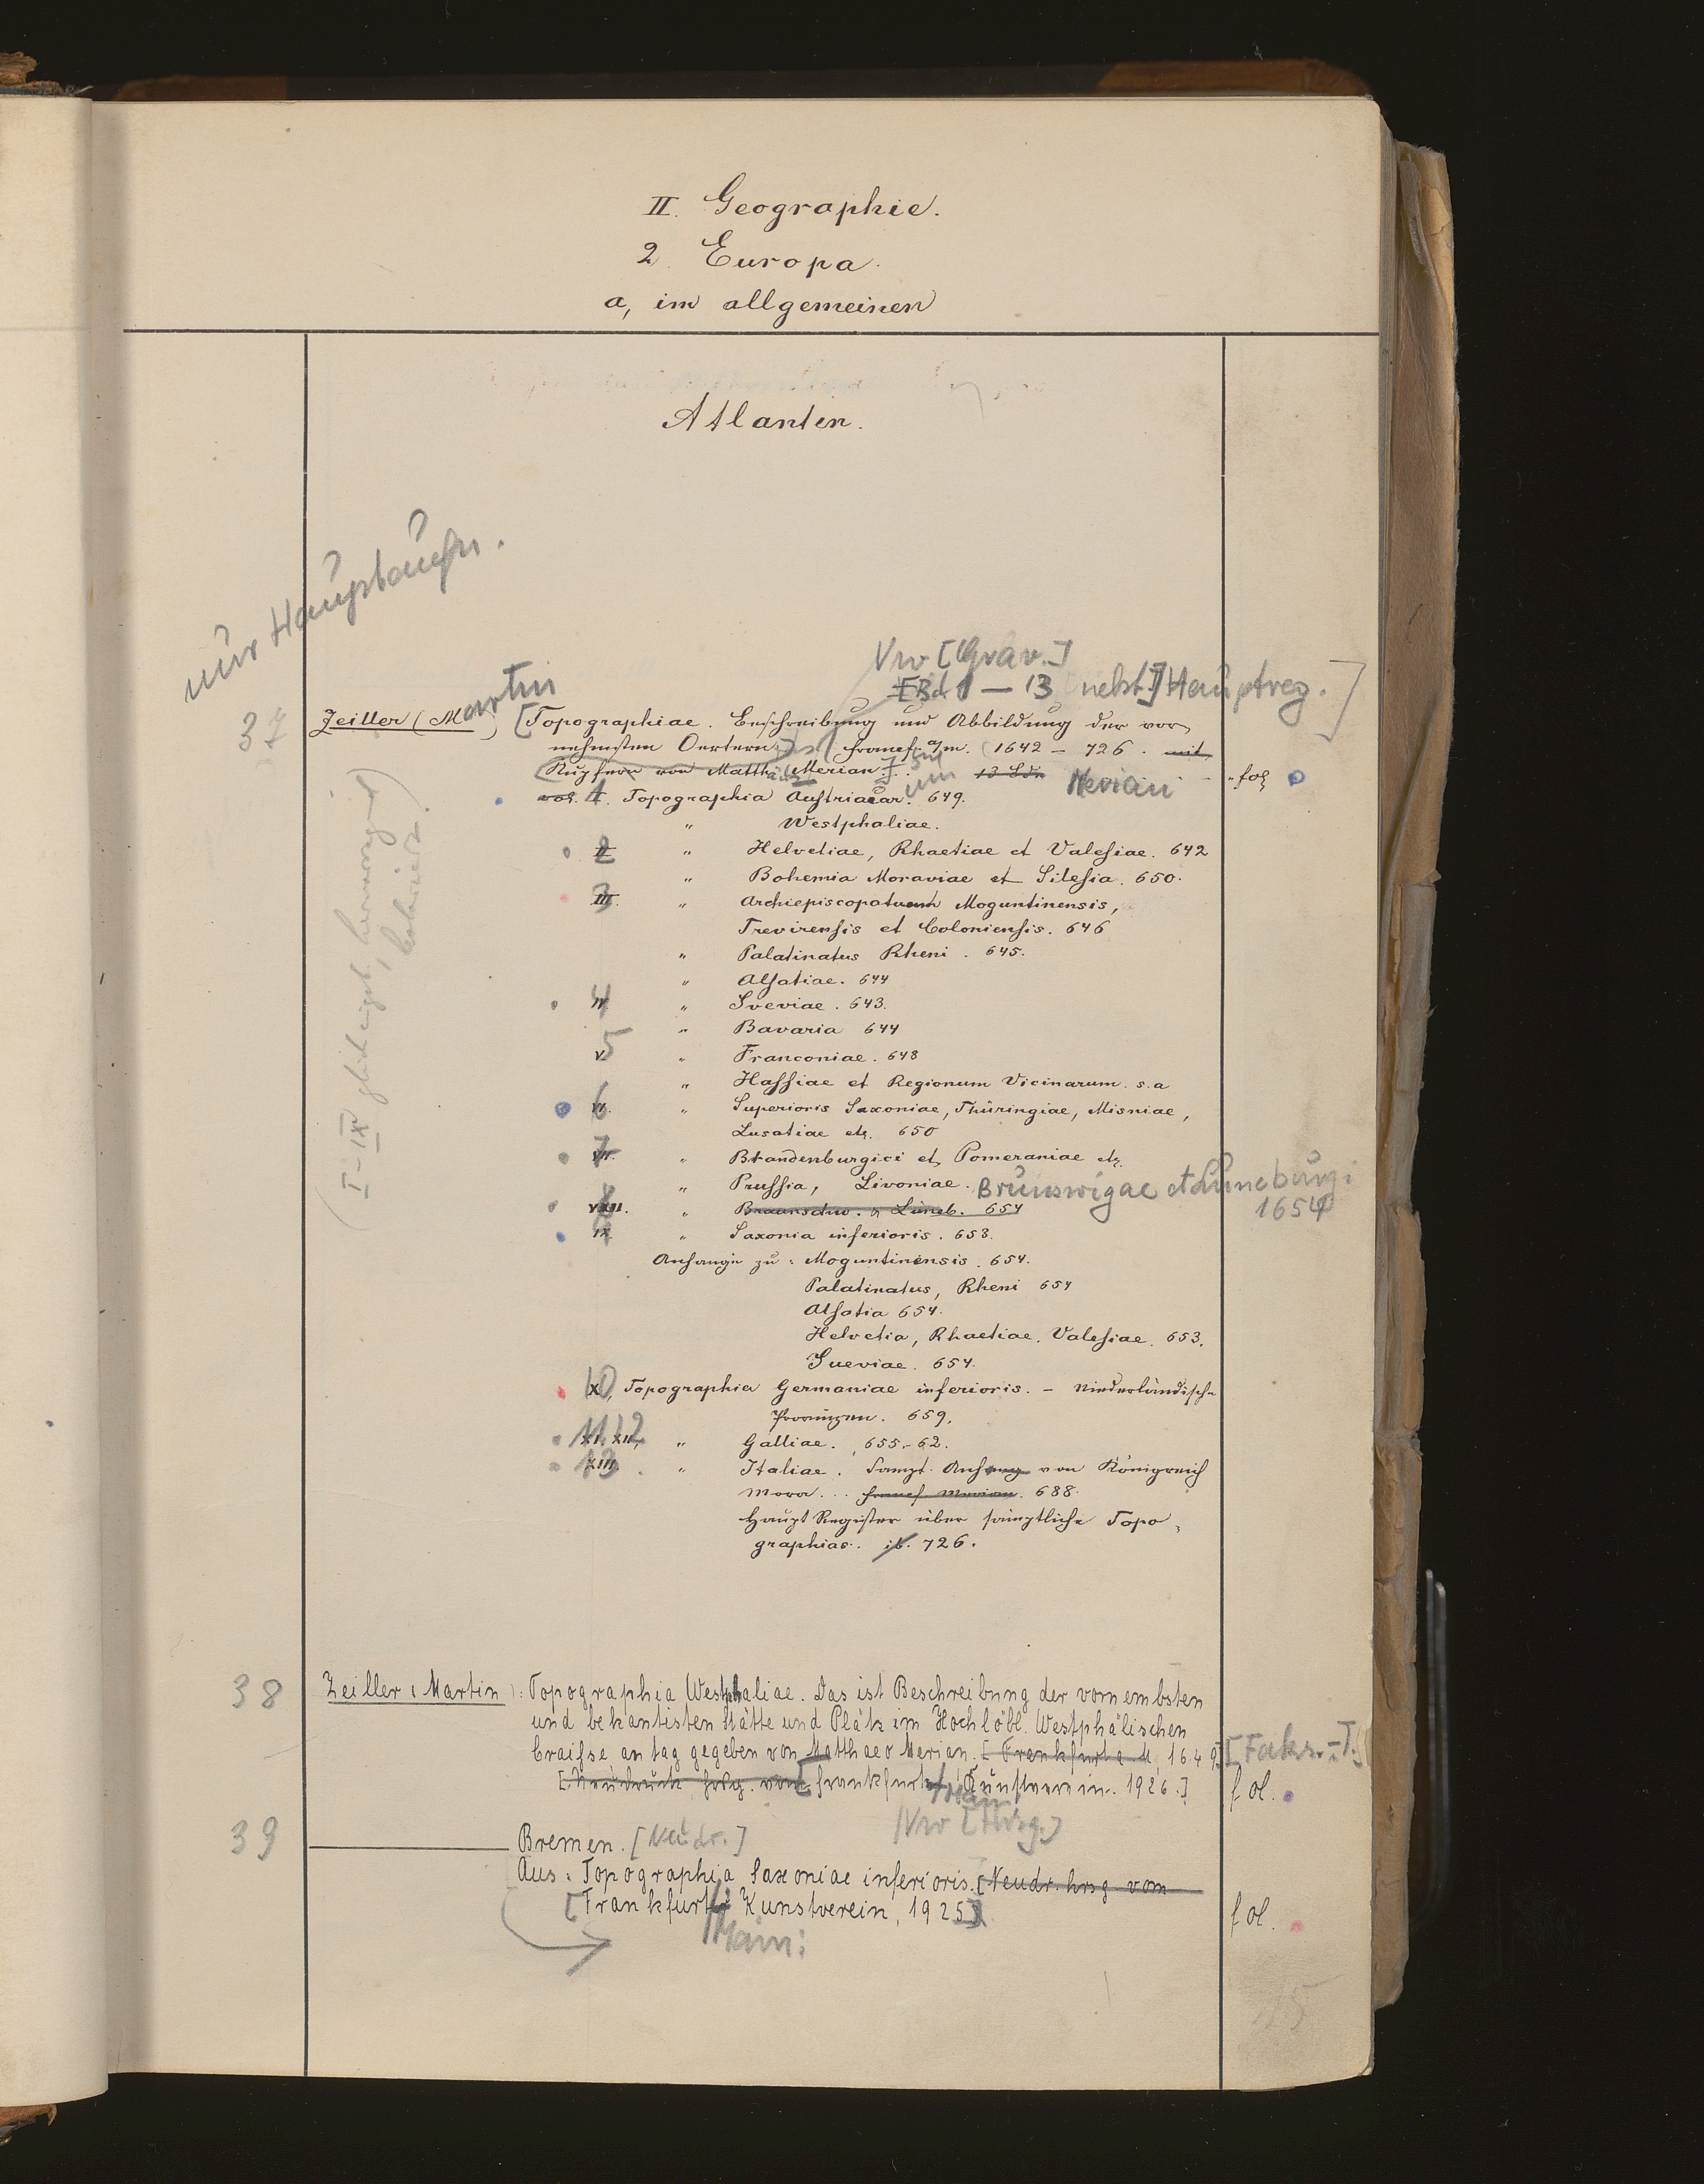 II. Geographie.
2. Europa.
a, im allgemeinen
Atlanten.
nur Hauptaufn.
Vw [Grav.]
[Bd. 1 — 13 nebst] Hauptreg.]
37 Zeiller (Martin) [Topographiae. Beschreibung und Abbildung der vor
nehmsten Oertern] Francf. a/m. (1642 – 726. mit
Kupfern von Matth. Merian]. 13 Bdn Merian fol
vol. I. 1 Topographia Austriacar. 649.
" Westphaliae.
II 2 " Helvetiae, Rhaetiae et Valesiae. 642
" Bohemia Moraviae et Silesia. 650.
III. 3 " Archiepiscopatuum Moguntinensis,
Trevirensis et Coloniensis. 646
" Palatinatus Rheni. 645.
" Alsatiae. 644
IV 4 " Sveviae. 643.
" Bavaria 644
V 5 " Franconiae. 648
" Hassiae et Regionum Vicinarum. s.a
VI. 6 " Superioris Saxoniae, Thüringiae, Misniae,
Lusatiae etc. 650
VII. 7 " Brandenburgici et Pomeraniae etc.
" Prussia, Livoniae. Brunswigae et Lüneburgi
1654
VIII. 8 " Braunschw. & Lüneb. 654
IX 9 " Saxonia inferioris. 653.
Anhange zu: Moguntinensis. 654.
Palatinatus, Rheni 654
Alsatia 654.
Helvetia, Rhaetiae. Valesiae. 653.
Sueviae. 654.
X, 10 Topographia Germaniae inferioris. – Niederländische
Provinzen. 659.
XI. XII, 11.12 " Galliae. 655.–62.
XIII 13. " Italiae. Sampt. Anhang von Königreich
Morea... Francf Merian. 688.
Haupt Register über sämptliche Topo
graphias. ib. 726.
(I–IX
38 Zeiller (Martin): Topographia Westphaliae. Das ist Beschreibung der vornembsten
und bekantisten Stätte und Plätz im Hochlöbl. Westphälischen
Craisse an tag gegeben von Matthaeo Merian. [Frankfurt a. M, 1649] [Faks.-T.]
[Neudruck hrsg. vom Frankfurt/Main Kunstverein. 1926.] fol.
Vw [Hrsg.]
39 ——— Bremen. [Neudr.]
Aus: Topographia Saxoniae inferioris. [Neudr. hrsg. vom
[Frankfurt/ Kunstverein, 1925] fol.
Main:
15